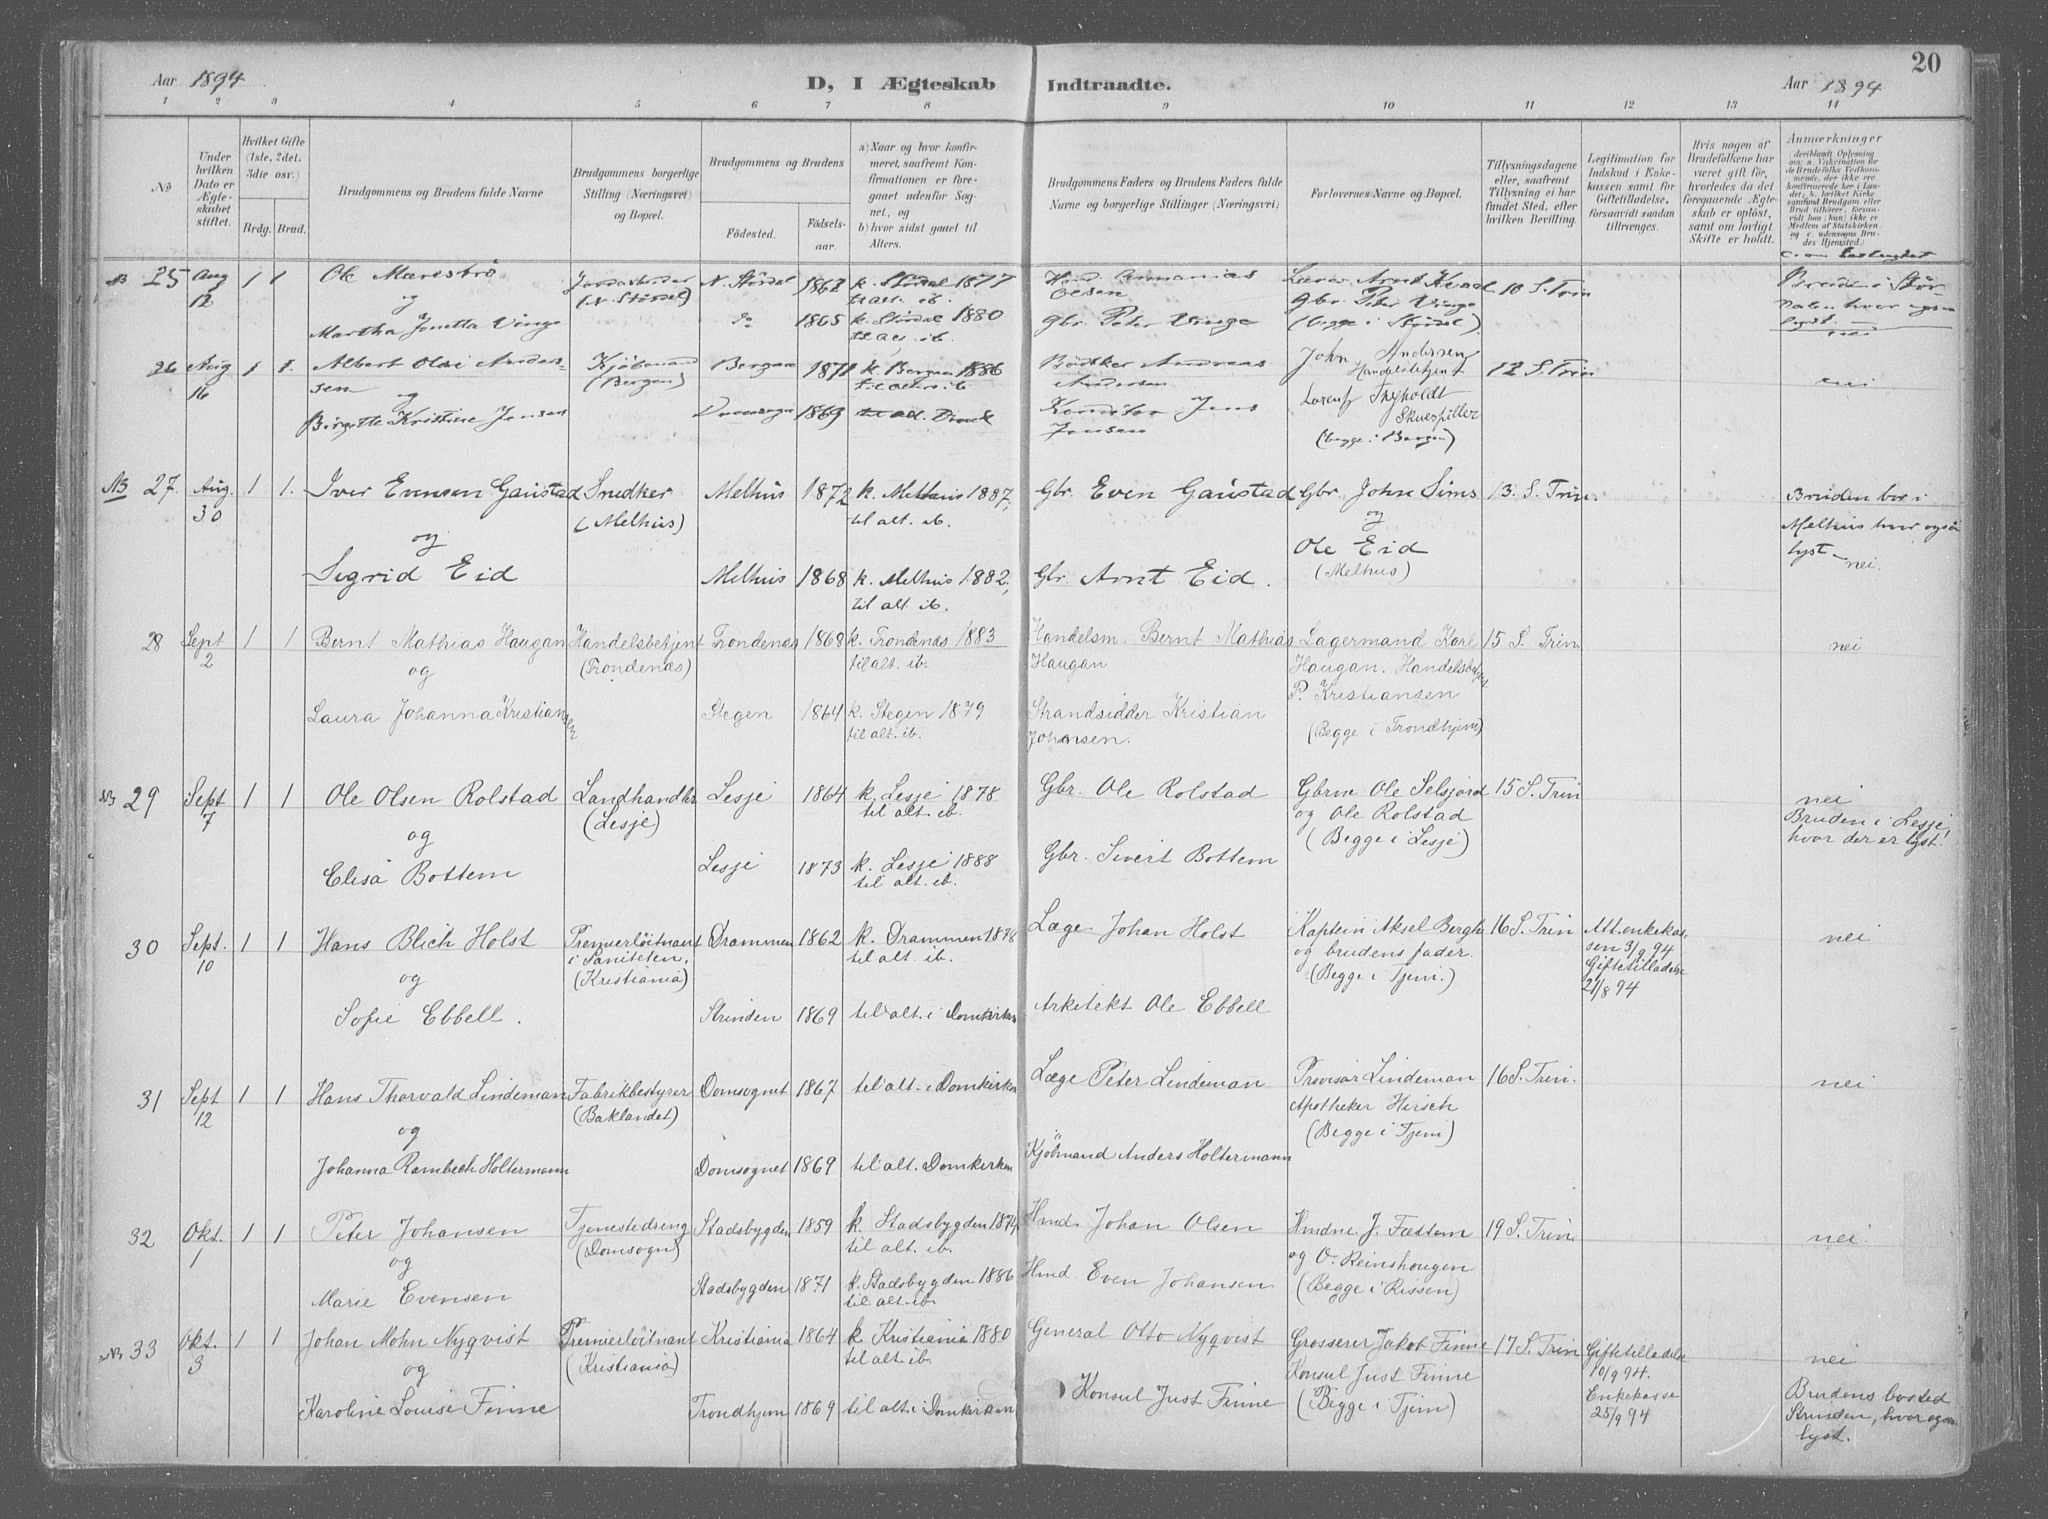 20
Aar 1894
D, I Ægteskab Indtraadte.
Aar 1894
1 2 3 4 5 6 7 8 9 10 11 12 13 14
No
Under hvilken Dato er Ægteskabet stiftet.
Hvilket Gifte (1ste, 2det, 3die osv.)
Brdg. Brud.
Brudgommens og Brudens fulde Navne
Brudgommens borgerlige Stilling (Næringsvei) og Bopæl.
Brudgommens og Brudens
Fødested.
Fødselsaar.
a) Naar og hvor konfirmeret, saafremt Konfirmationen er foregaaet udenfor Sognet, og
b) hvor sidst gaaet til Alters.
Brudgommens Faders og Brudens Faders fulde Navne og borgerlige Stillinger (Næringsvei)
Forlovernes Navne og Bopæl.
Tillysningsdagene eller, saafremt Tillysning ei har fundet Sted, efter hvilken Bevilling.
Legitimation for Indskud i Enkekassen samt for Giftetilladelse, forsaavidt saadan tiltrænges.
Hvis nogen af Brudefolkene har været gift før, hvorledes da det foregaaende Ægteskab er opløst, samt om lovligt Skifte er holdt.
Anmærkninger
deriblandt Oplysning om: a. Vakcination for de Brudefolks Vedkommende, der ikke ere konfirmerede her i Landet; b. hvilket Kirkesamfund Brudgom eller Brud tilhører, forsaavidt han (hun) ikke er Medlem af Statskirken, og c. udensogns Brudes Hjemsted.)
NB 25 Aug 12 1 1
Ole Mærsbrø
og
Martha Jonetta Vinge
(N. Stördal)
N. Stördal 1862 k. Stördal 1877
til alt. ib.
do 1865 k. Stördal 1880
til alt. ib.
Olsen
Gbr. Peter Vinge
Lærer Arnt
Gbr. Peter Vinge
(begge i Stjördal)
10 S. Trin
nei
26 Aug 16 1 1.
Albert Olai Anderssen
og
Birgitte Kristine Jensen
Kjøbmand
(Bergen)
Bergen 1871 k. Bergen 1886
til alters ib
Domsogn 1869 til alt. Domk
Bödker Andreas Andersen
Jens Jensen
John Andersen
Handelsbetjent
Skuespiller
(begge i Bergen)
12 S. Trin
nei
NB 27. Aug. 30 1 1.
Iver Evensen Gaustad
og
Sigrid Eid
Snedker
(Melhus)
Melhus 1872 k. Melhus 1887,
til alt. ib.
Melhus 1868 k. Melhus 1882,
til alt. ib.
Gbr. Even Gaustad
Gbr. Arnt Eid.
Gbr. John Sims
og
Ole Eid
(Melhus)
13. S. Trin.
Bruden bor i
Melhus hvor også
lyst — nei.
28 Sept 2 1 1
Bernt Mathias Haugan
og
Laura Johanna Kristiansen
Handelsbetjent
(Trondenæs)
Trondenæs 1868 k. Trondenæs 1883
til alt. ib.
Stegen 1864 k. Stegen 1879
til alt. ib.
Handelsm. Bernt Mathias
Haugan
Strandsidder Kristian
Johansen.
Lagermand Karl
Haugan. Handelsbetjent
P. Kristiansen
(Begge i Trondhjem)
15 S. Trin.
nei
NB 29 Sept 7 1 1
Ole Olsen Rolstad
og
Elisa Bottem
Landhandler
(Lesje)
Lesje 1864 k. Lesje 1878
til alt. ib.
Lesje 1873 k. Lesje 1888
til alt. ib.
Gbr. Ole Rolstad
Gbr. Sivert Bottem
Gbrne Ole Selsjord
og Ole Rolstad
(Begge i Lesje)
15 S. Trin
nei
Bruden i Lesje,
hvor der er lyst!
30 Sept. 10 1 1
Hans Blich Holst
og
Sofie Ebbell.
Premierløitnant
i Saniteten.
(Kristiania)
Drammen 1862 k. Drammen 1878
til alt. ib.
Strinden 1869 til alt. i Domkirken
Læge Johan Holst
Arkitekt Ole Ebbell
Kaptein Aksel Bergh
og brudens fader.
(Begge i Tjem.)
16 S. Trin
Att. enkekassen 3/9 94
Giftetilladelse
21/8 94
nei
31 Sept 12 1 1
Hans Thorvald Lindeman
og
Johanna Rambech Holtermann
Fabrikbestyrer
(Baklandet)
Domsognet 1867 til alt. i Domkirken
Domsognet 1869 til alt. Domkirken
Læge Peter Lindeman
Kjöbmand Anders Holtermann
Provisor Lindeman
Apotheker Hirsch
(Begge i Tjem)
16 S. Trin.
nei
32 Okt. 1 1 1
Peter Johansen
og
Marie Evensen
Tjenestedreng
(Domsogn)
Stadsbygden 1859 k. Stadsbygden 1874
til alt. ib.
Stadsbygden 1871 k. Stadsbygden 1886
til alt. ib.
Hmd. Johan Olsen
Hmd. Even Johansen
Hmdne J. Fættem
og O. Reinshougen
(Begge i Rissen)
19 S. Trin.
nei.
NB 33 Okt. 3 1 1
Johan Mohn Nyqvist
og
Karoline Louise Finne
Premierløitnant
(Kristiania)
Kristiania 1864 k. Kristiania 1880
til alt. ib.
Trondhjem 1869 til alt. i Domkirken
General Otto Nyqvist
Konsul Just Finne
Grosserer Jakob Finne
Konsul Just Finne
(Begge i Tjem)
17 S. Trin
Giftetilladelse
10/9 94.
Enkekasse
25/9 94
nei
Brudens bosted
Strinden, hvor også
lyst.